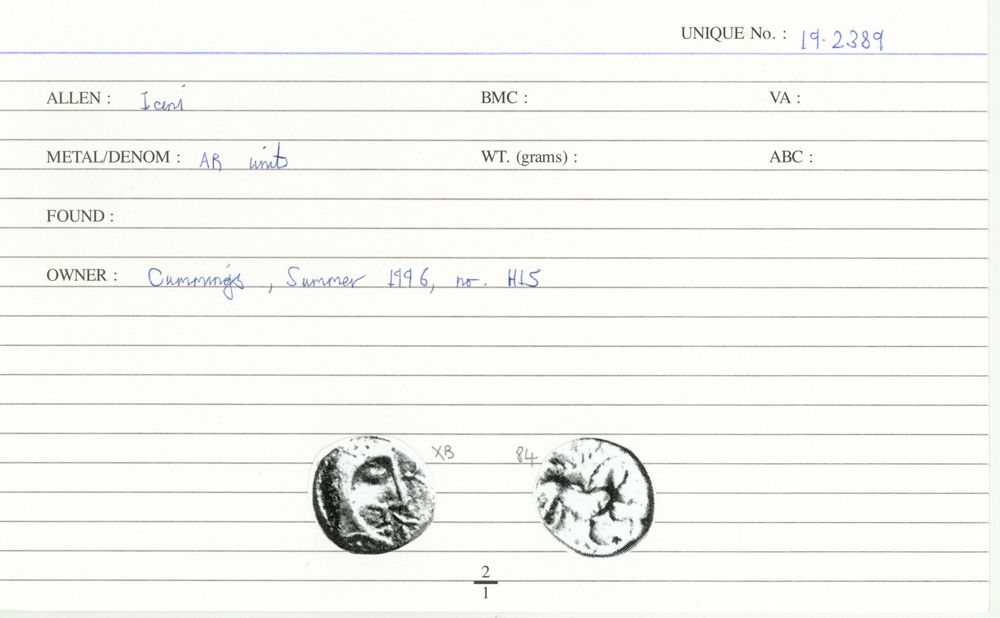 UNIQUE No. : 19.2389
ALLEN : Iceni BMC : VA :
METAL/DENOM : AR unit WT. (grams) : ABC :
FOUND :
OWNER : Cummings, Summer 1996, no. H15
XB 84
2
1